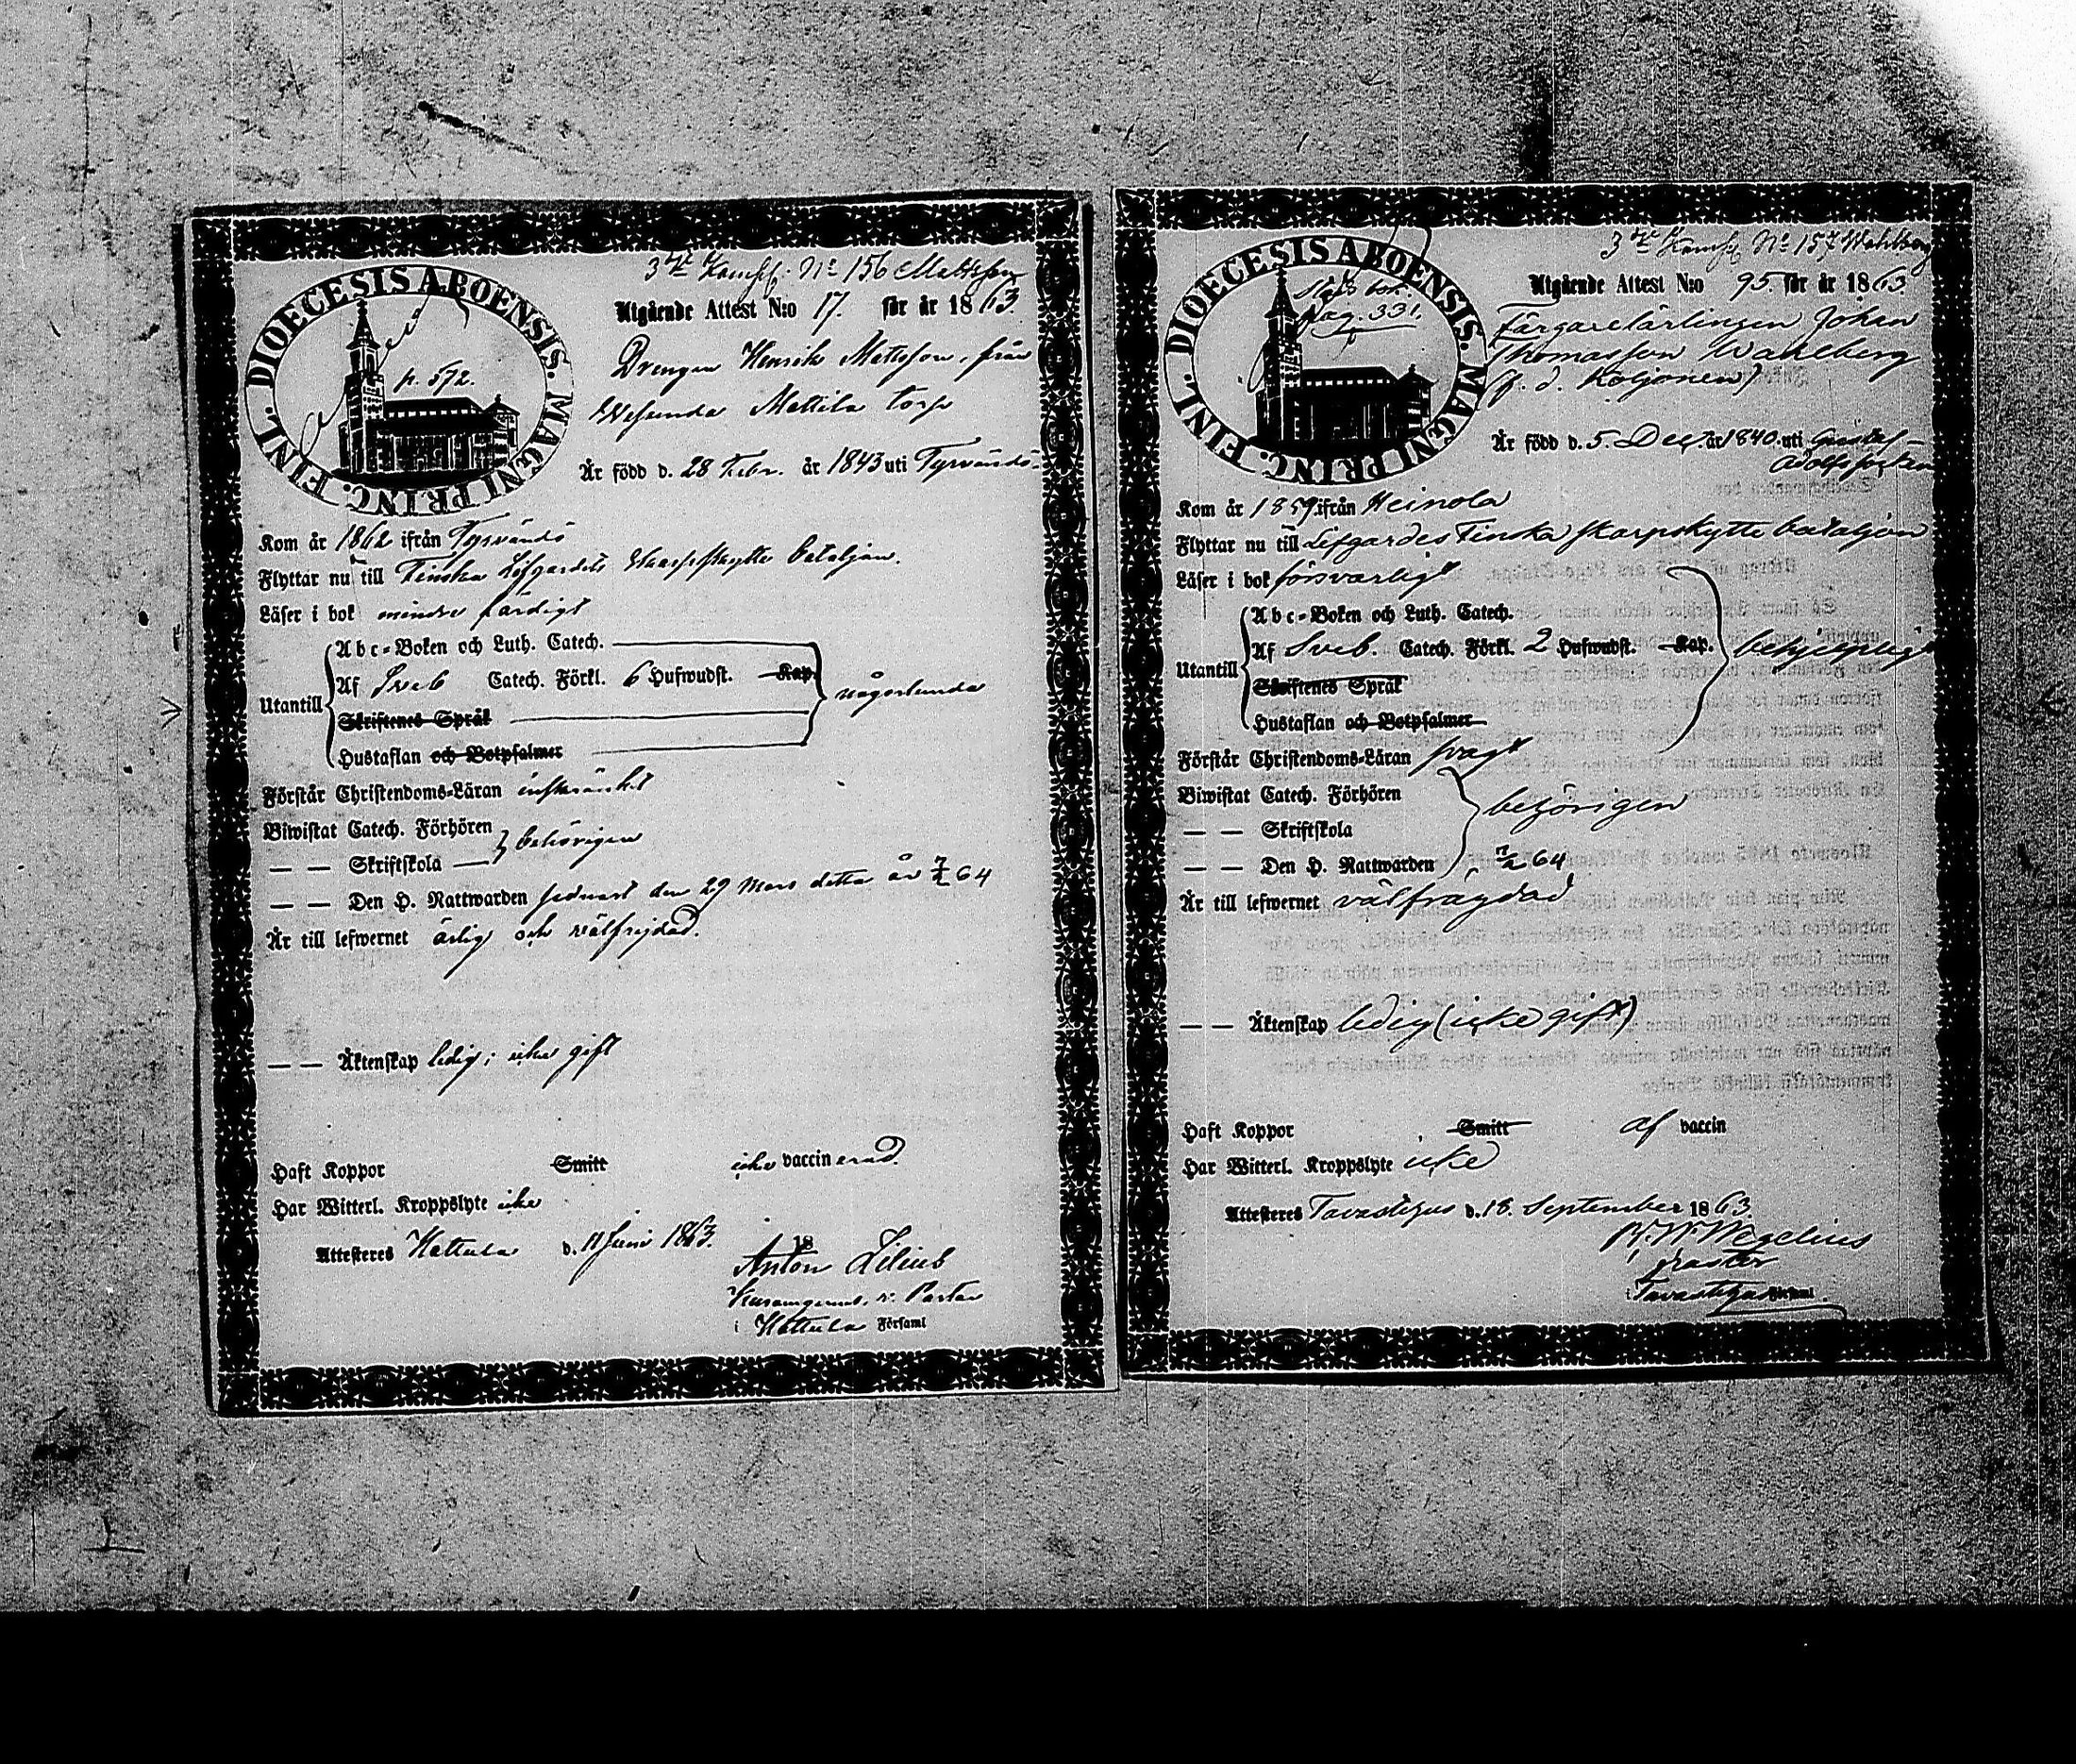 3dje Komp: No 156 Mattsson
DIOECESIS ABOENSIS. MAGNI PRINC. FINL.
p. 572.
Utgående Attest N:o 17. för år 1863.
Drengen Henrik Mattsson, från
Mattila torp
Är född d. 28 Febr. år 1843 uti Tyrvändö.
Kom år 1862 ifrån Tyrvändö
Flyttar nu till Finska Lifgardets Skarpskytte bataljon.
Läser i bok mindre färdigt
Abc-Boken och Luth. Catech.
Utantill
Af Sveb Catech. Förkl. 6 Hufwudst. Kap.
någorlunda
Skriftenes Språk
Hustaflan och Botpsalmer
Förstår Christendoms-Läran inskränkt
Biwistat Catech. Förhören
behörigen
— — Skriftskola
— — Den H. Nattwarden sednast den 29 Mars detta år 7/2 64
Är till lefwernet ärlig och välfrejdad.
— — Äktenskap ledig; icke gift
Haft Koppor Smitt icke vaccinerad.
Har Witterl. Kroppslyte icke
Attesteres Hattula d. 11 Juni 1863. 18
Anton Lilius
v. Pastor
i Hattula Församl
3dje Komp No 157 Wahlberg
DIOECESIS ABOENSIS. MAGNI PRINC. FINL.
bok.
pag. 331.
Utgående Attest N:o 95. för år 1863
Färgarelärlingen Johan
Thomasson Wahlberg
(f. d. Koljonen)
Är född d. 5. Dec. år 1840. uti Gustaf-
Adolfs socken
Kom år 1859. ifrån Heinola
Flyttar nu till Lifgardes Finska skarpskytte bataljon
Läser i bok försvarligt
Abc-Boken och Luth. Catech.
Utantill
Af Sveb. Catech. Förkl. 2 Hufwudst. Kap.
behjelpligt
Skriftenes Språk
Hustaflan och Botpsalmer
Förstår Christendoms-Läran svagt
Biwistat Catech. Förhören
behörigen
— — Skriftskola
— — Den H. Nattwarden 7/2 64
Är till lefwernet välfrägdad
— — Äktenskap ledig (icke gift)
Haft Koppor Smitt af vaccin
Har Witterl. Kroppslyte icke
Attesteres Tavastehus d. 18. September 1863.
Wegelius
pastor
i Tavastehus Församl.